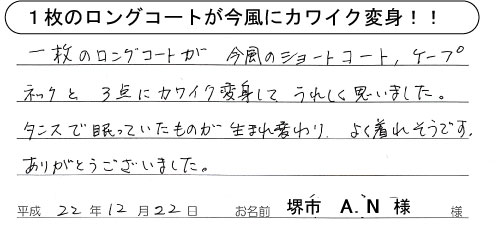 1枚のロングコートが今風にカワイク変身！！
一枚のロングコートが 今風のショートコート、ケープ
ネックと 3点にカワイク変身して うれしく思いました。
タンスで眠っていたものが 生まれ変わり、よく着れそうです。
ありがとうございました。
平成 22 年 12 月 22 日 お名前 堺市 A.N 様 様